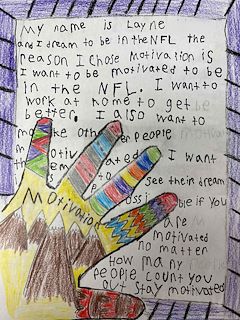 My name is Layne
and I dream to be in the NFL the
reason I chose motivation is
I want to be motivated to be
in the NFL. I want to
work at home to get be
better. I also want to
make other people
motivated I want
see their dream
possible if you
are
motivated
no matter
How many
people count you
out stay motivated
Motivation